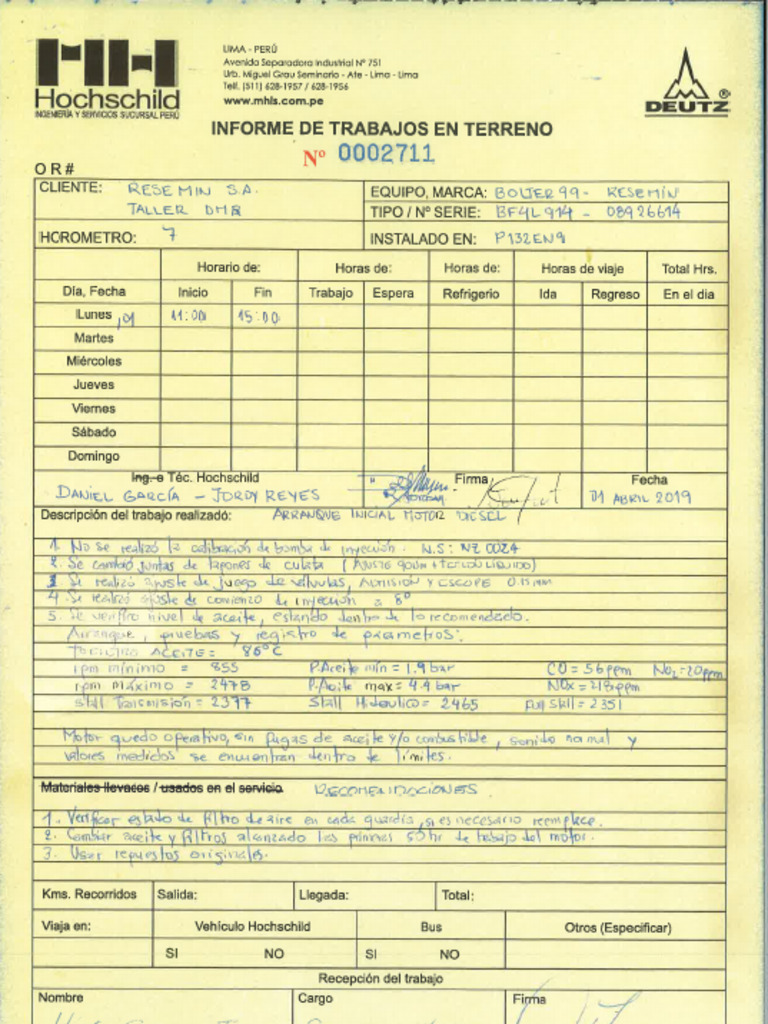 Hochschild
INGENIERÍA Y SERVICIOS SUCURSAL PERÚ
LIMA - PERÚ
Avenida Separadora Industrial Nº 751
Urb. Miguel Grau Seminario - Ate - Lima - Lima
Telf. (511) 628-1957 / 628-1956
www.mhls.com.pe
DEUTZ®
INFORME DE TRABAJOS EN TERRENO
Nº 0002711
O R #
CLIENTE: RESEMIN S.A.
TALLER
EQUIPO, MARCA: BOLTER 99 - RESEMIN
TIPO / Nº SERIE: BF4L914 - 08926614
HOROMETRO: 7
INSTALADO EN: P132EN9
Horario de: Horas de: Horas de: Horas de viaje Total Hrs.
Día, Fecha Inicio Fin Trabajo Espera Refrigerio Ida Regreso En el dia
Lunes, 01 11:00 15:00
Martes
Miércoles
Jueves
Viernes
Sábado
Domingo
Ing. o Téc. Hochschild Firma Fecha
DANIEL GARCÍA - JORDY REYES 01 ABRIL 2019
Descripción del trabajo realizado: ARRANQUE INICIAL MOTOR DIESEL
1. No se realizó la calibración de bomba de inyección. N.S: NZ 0024
2. Se cambió juntas de tapones de culata
3. Se realizó ajuste de juego de válvulas, ADMISIÓN Y ESCAPE 0.15 mm
4. Se realizó ajuste de comienzo de inyección a 8°
5. Se verifico nivel de aceite, estando dentro de lo recomendado.
Arranque, pruebas y registro de parametros:
ACEITE: 86°C
rpm mínimo = 855 P.Aceite min = 1.9 bar CO = 56ppm NO2 = 20ppm
rpm máximo = 2478 P.Aceite max = 4.4 bar NOx = 218ppm
stall Transmisión = 2377 Stall Hidraulico = 2465 Full Stall = 2351
Motor quedo operativo, sin fugas de aceite y/o combustible, sonido normal y
valores medidos se encuentran dentro de límites.
Materiales llevados / usados en el servicio RECOMENDACIONES
1. Verificar estado de filtro de aire en cada guardia, si es necesario reemplace.
2. Cambiar aceite y filtros alcanzado las primeras 50 hr de trabajo del motor.
3. Usar repuestos originales.
Kms. Recorridos Salida: Llegada: Total:
Viaja en: Vehículo Hochschild Bus Otros (Especificar)
SI NO SI NO
Recepción del trabajo
Nombre Cargo Firma